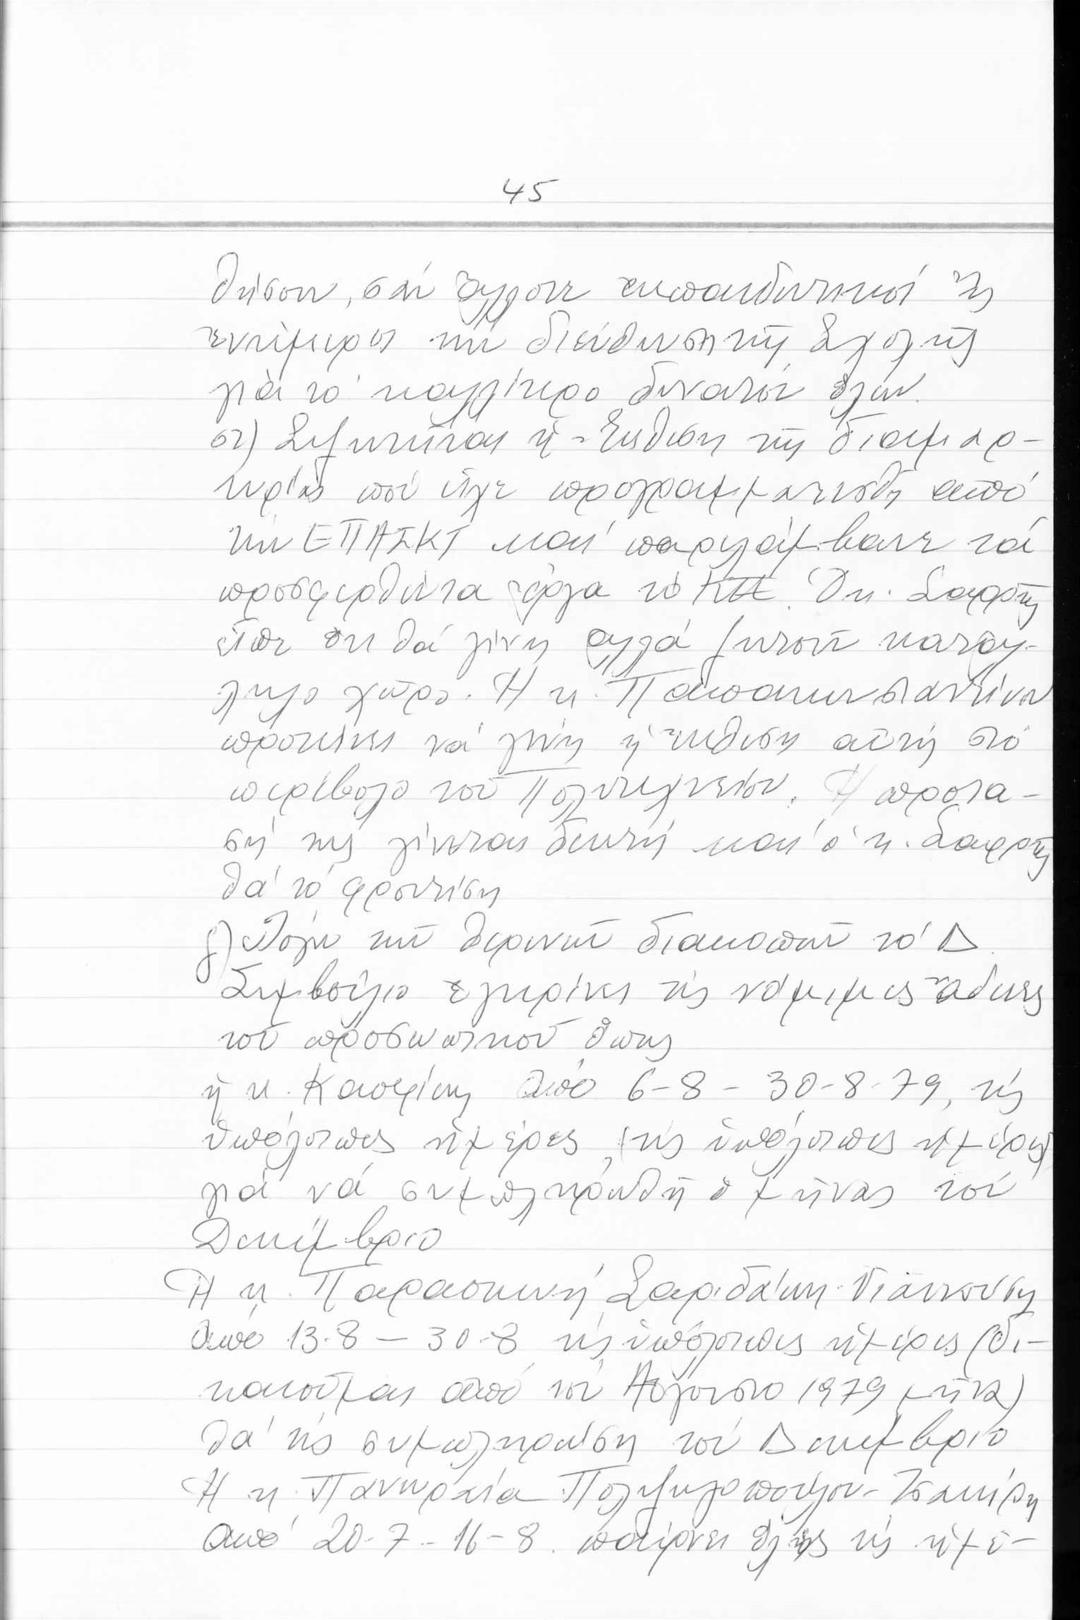 45
θήσουν, σάν ἄλλοτε ἐκπαιδευτικοί
ἐνήμεροι τήν διεύθυνση τῆς Σχολῆς
γιά τό καλλίτερο δυνατόν ὅλων.
στ) Συζητεῖται ἡ ἔκθεση τῆς διαμαρ-
τυρίας πού εἶχε προγραμματισθῆ ἀπό
τήν ΕΠΑΣΚΤ καί παρελάμβανε τά
προσφερθέντα ἔργα τό ΚΠΕ. Ὁ κ. Σαρρῆς
εἶπε ὅτι θά γίνη ἀλλά ζητοῦν κατάλ-
ληλο χῶρο. Ἡ κ. Παπακωνσταντίνου
προτείνει νά γίνη ἡ ἔκθεση αὐτή στό
περίβολο τοῦ Πολυτεχνείου. Ἡ πρότα-
σή της γίνεται δεκτή καί ὁ κ. Σαρρῆς
θά τό φροντίση
ζ) λόγω τῶν θερινῶν διακοπῶν τό Δ.
Συμβούλιο ἐγκρίνει τίς νόμιμες ἄδειες
τοῦ προσωπικοῦ ὅπως
ἡ κ. ἀπό 6-8 - 30-8-79, τίς
ὑπόλοιπες ἡμέρες (τίς ὑπόλοιπες ἡμέρες)
γιά νά συμπληρωθῆ ὁ μῆνας τόν
Δεκέμβριο
Ἡ κ. Παρασκευή Σαριδάκη-Γιαννούση
ἀπό 13-8 - 30-8 τίς ὑπόλοιπες ἡμέρες (δι-
καιοῦμαι ἀπό τόν Αὔγουστο 1979 μῆνα)
θά τίς συμπληρώση τόν Δεκέμβριο
Ἡ κ. Παγκρατία
ἀπό 20-7 - 16-8. παίρνει ὅλες τίς ἡμέ-